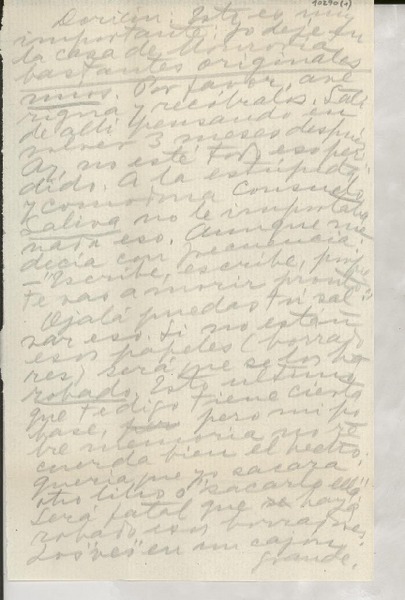 10290(1)
Doricín. Esto es muy
importante: Yo dejé en
la casa de Monrovia
bastantes originales
míos. Por favor, ave
rigua y recóbralos. Salí
de allí pensando en
volver 3 meses después
Ay, no esté todo eso per
dido. A la estúpida
y comodona Consuelo
Saliva no le importaba
nada eso. Aunque me
decía con frecuencia:
—"Escribe, escribe, porque
te vas a morir pronto."
Ojalá puedas tú sal
var eso. Si no están
esos papeles (borrado
res) será que se los ha
robado. Esto último
que te digo tiene cierta
base, pero mi po
bre memoria no re
cuerda bien el hecho.
Quería que yo sacara
otro libro o "sacarlo ella".
Será fatal que se haya
robado esos borradores.
Los "veo" en un cajón
grande.